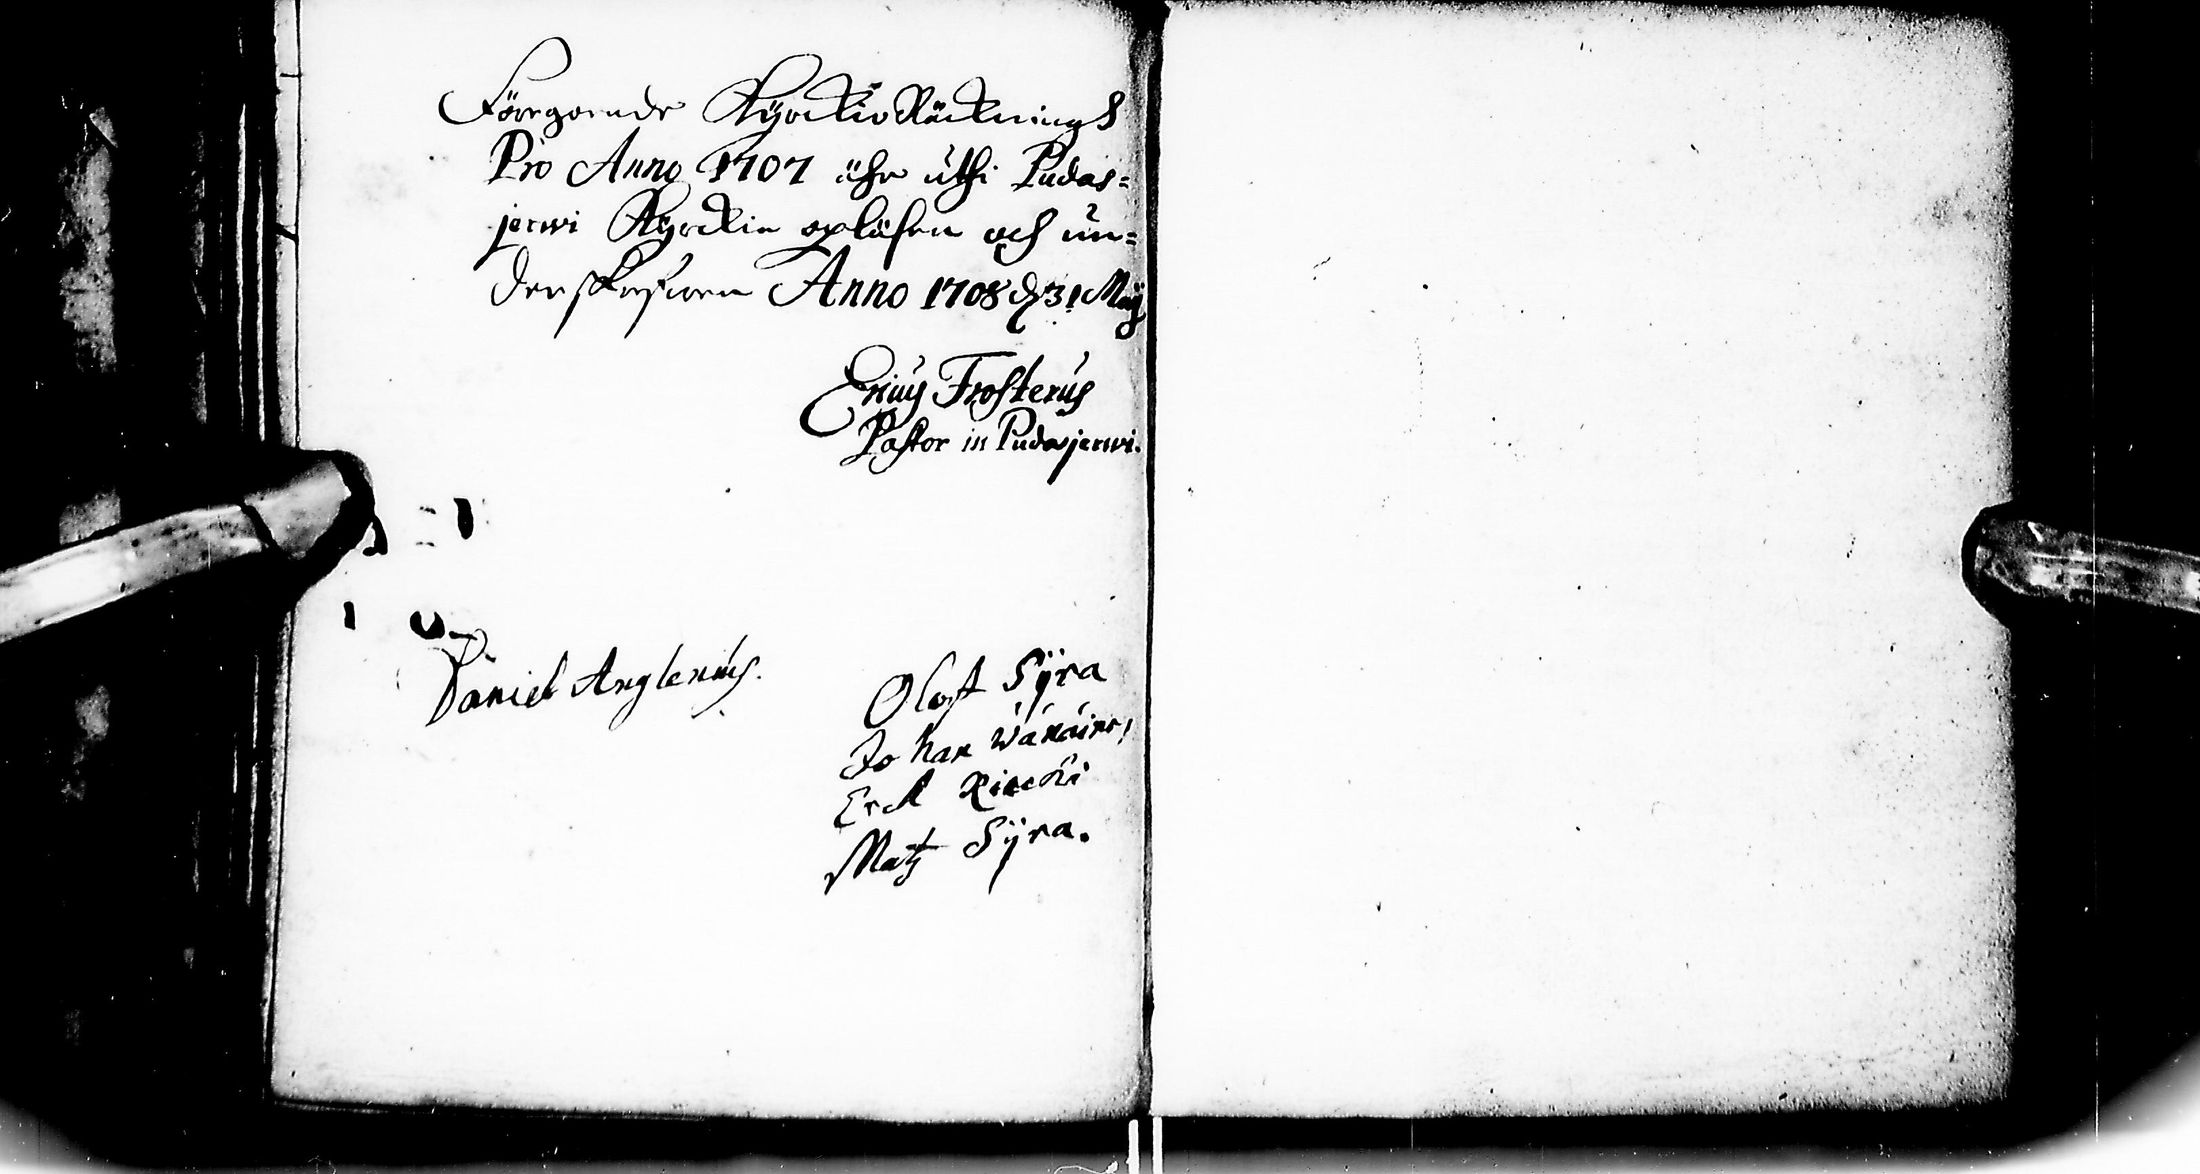 Föregoende Kyrckio Räcknings
Pro Anno 1707 ähr uthi Pudas=
jerwi Kyrckia opläsen och un=
derskrifwen Anno 1708 d 31 Maij
Ericus Frosterus
Pastor in Pudasjerwi.
Daniel Anglenius.
Oloff Sÿra
Johan
Erck
Matz Sÿra.